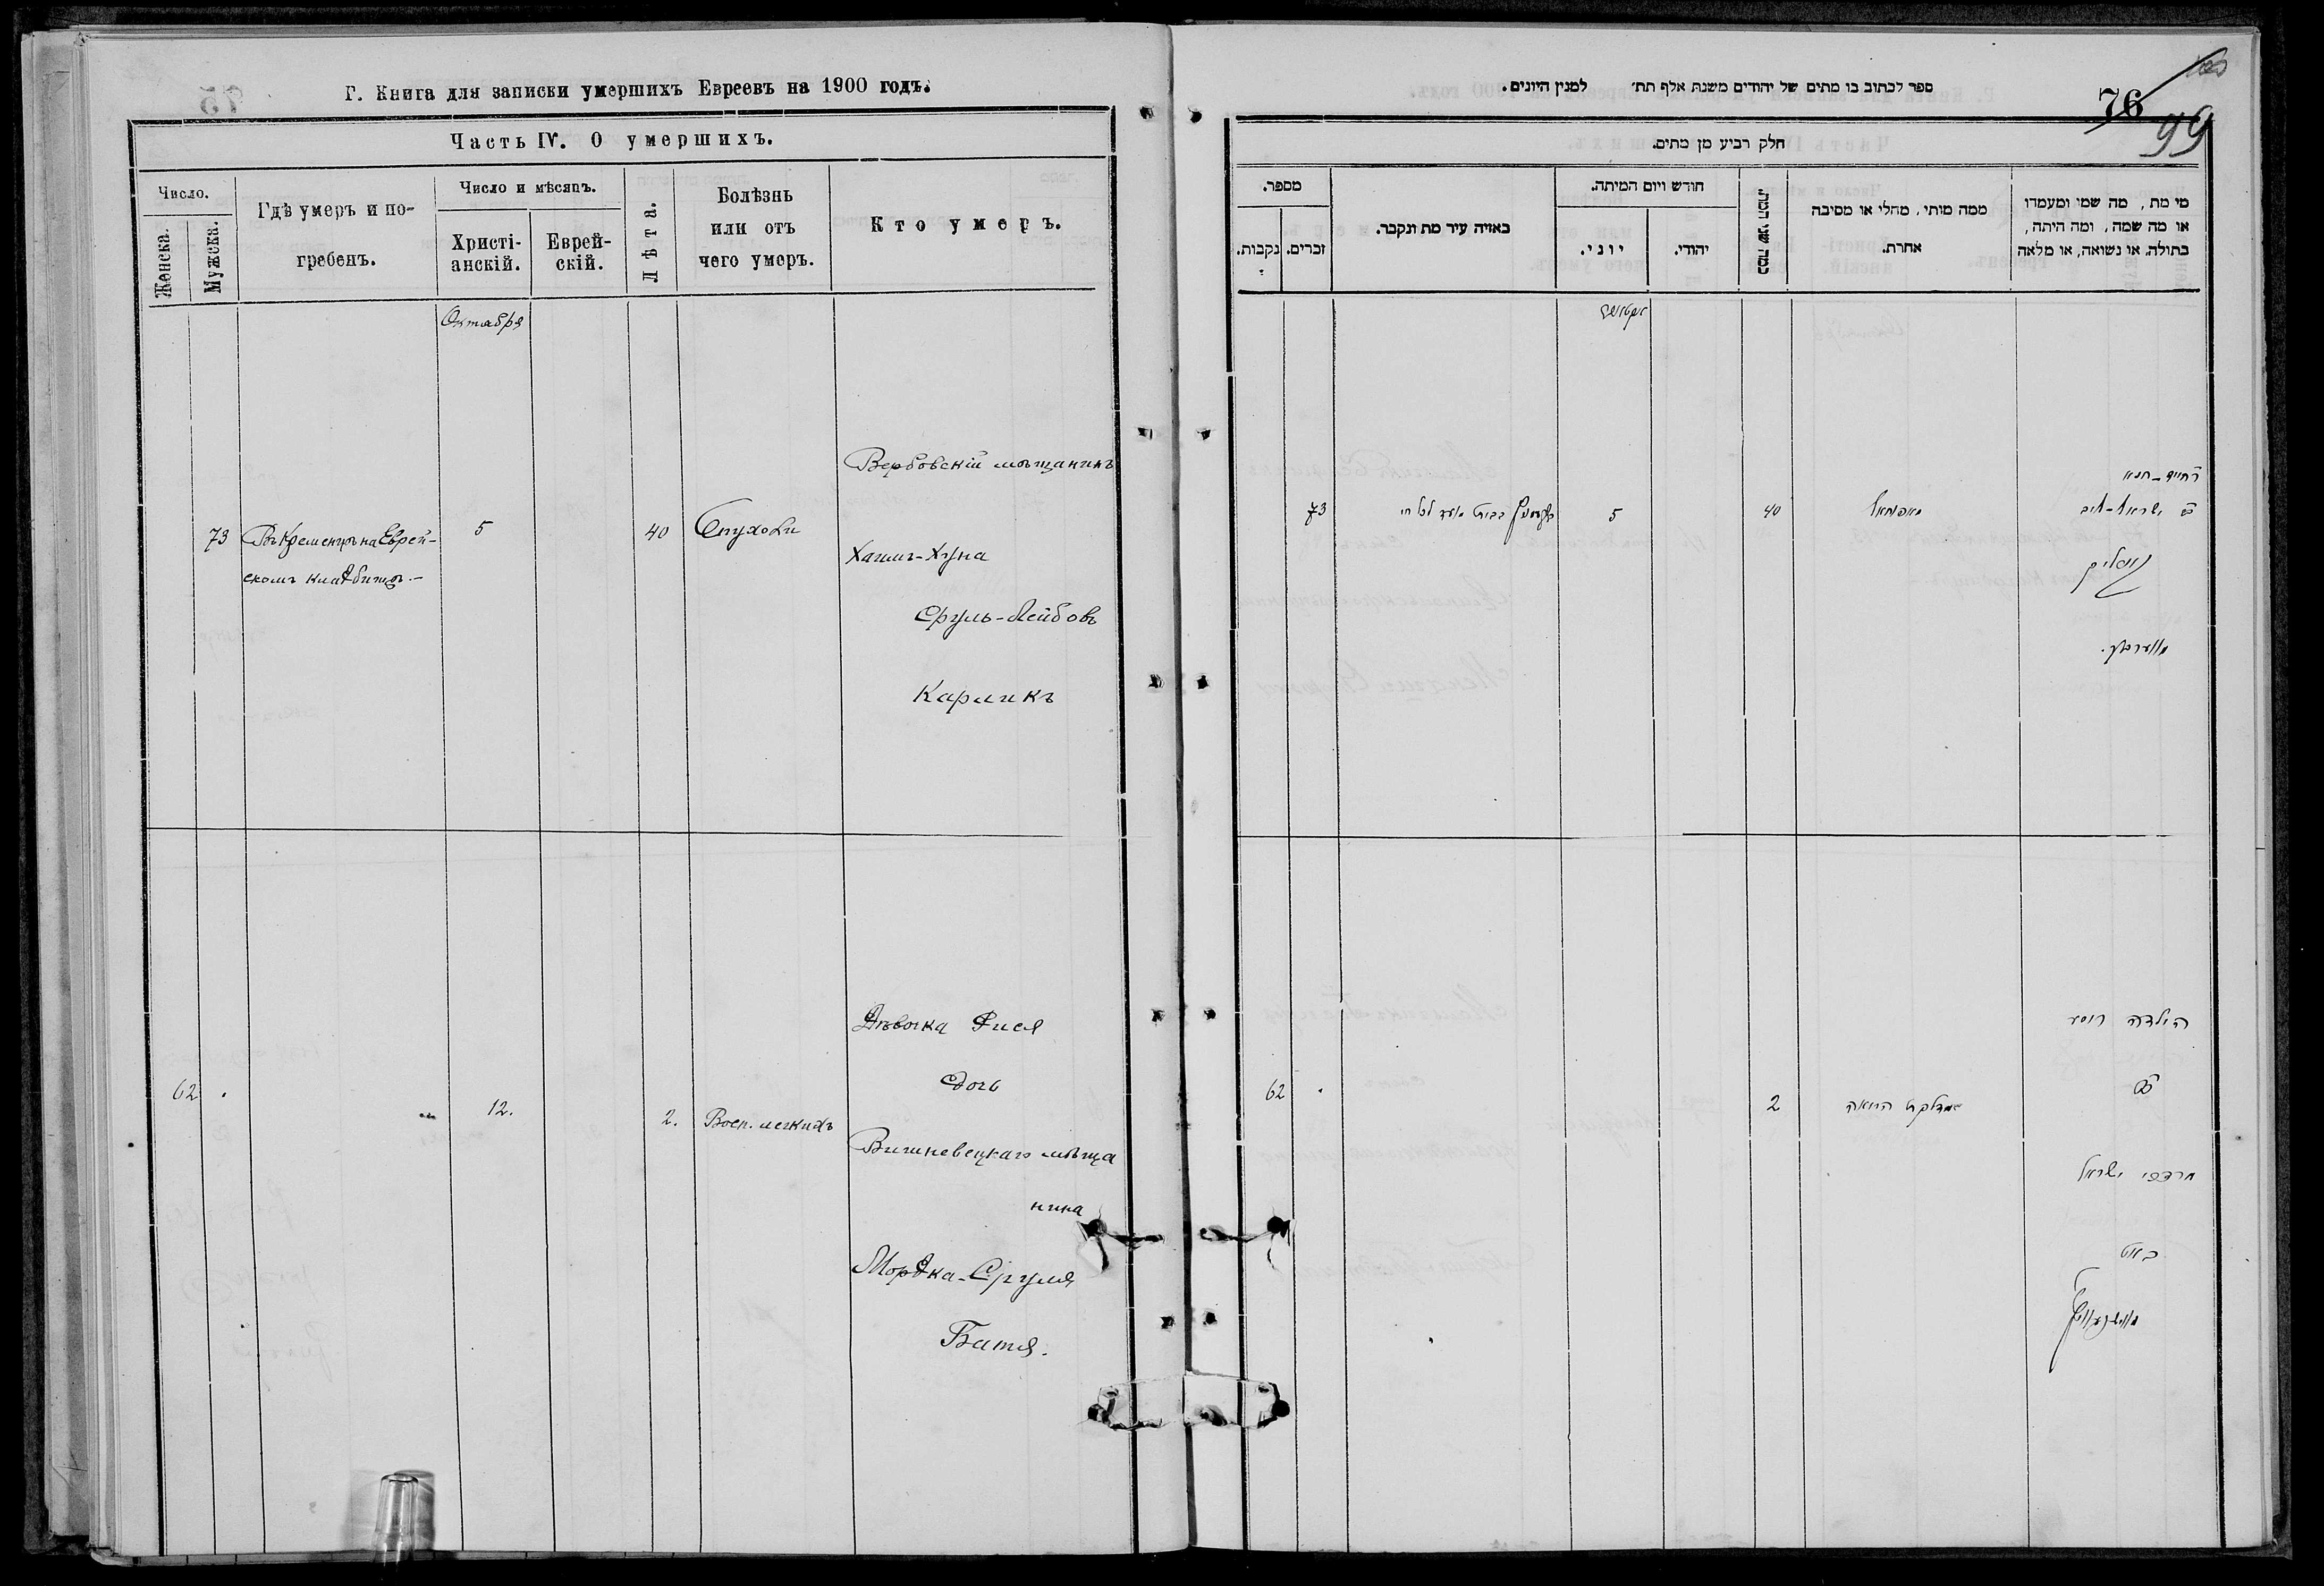 Г. Книга для записки умершихъ Евреевъ на 1900 годъ.
Часть IV. О умершихъ.
Число.
Женска.
Мужска.
Гдѣ умеръ и по-
гребенъ.
Число и мѣсяцъ.
Христі-
анскій.
Еврей-
скій.
Лѣта.
Болѣзнь
или отъ
чего умеръ.
Кто умеръ.
Октября
73
Въ Кременцѣ на Еврей-
скомъ кладбищѣ.-
5
40
Сухотки
Вербовскій мѣщанинъ
Хаимъ-Хуна
Сруль-Лейбовъ
Карликъ
62
"
12.
2.
Восп. легкихъ
Дѣвочка Рися
дочь
Вишневецкаго мѣща
нина
Мордка-Сруля
Батя.
ספר לכתוב בו מתים של יהודים משנת אלף תת׳ למנין היונים.
76
99
חלק רביע מן מתים.
מספר.
נקבות.
זכרים.
באיזה עיר מת ונקבר.
חודש ויום המיתה.
יוני.
יהודי.
כמה שני המת.
ממה מותו, מחלי או מסיבה
אחרת.
מי מת, מה שמו ומעמדו
או מה שמה, ומה היתה,
בתולה, או נשואה, או מלאה
73
5
40
חיים-חנא
ב׳ ישראל-ליב
62
2
מדלקת הריאה
הילדה ריסע
ב׳
מרדכי ישראל